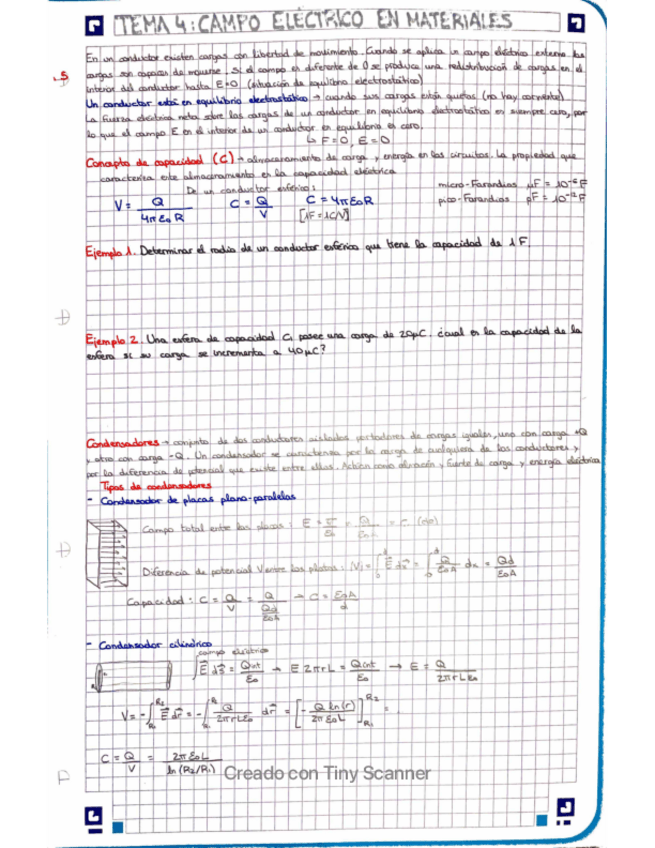 TEMA 4: CAMPO ELÉCTRICO EN MATERIALES
En un conductor existen cargas con libertad de movimiento. Cuando se aplica un campo eléctrico externo las
cargas son capaces de moverse. Si el campo es diferente de 0 se produce una redistribución de cargas en el
interior del conductor hasta E=0 (situación de equilibrio electrostático)
Un conductor está en equilibrio electrostático → cuando sus cargas están quietas (no hay corriente)
La fuerza eléctrica neta sobre las cargas de un conductor en equilibrio electrostático es siempre cero, por
lo que el campo E en el interior de un conductor en equilibrio es cero.
↳ F=0, E=0
Concepto de capacidad (C) → almacenamiento de carga y energía en los circuitos. La propiedad que
caracteriza este almacenamiento es la capacidad eléctrica
De un conductor esférico:
micro-Faradios μF = 10⁻⁶ F
V = Q / 4πε₀R   C = Q / V   C = 4πε₀R
pico-Faradios pF = 10⁻¹² F
[1F = 1C/V]
Ejemplo 1. Determinar el radio de un conductor esférico que tiene la capacidad de 1 F.
Ejemplo 2. Una esfera de capacidad C₁ posee una carga de 20μC. ¿cual es la capacidad de la
esfera si su carga se incrementa a 40μC?
Condensadores → conjunto de dos conductores aislados portadores de cargas iguales, uno con carga +Q
y otro con carga -Q. Un condensador se caracteriza por la carga de cualquiera de los conductores y
por la diferencia de potencial que existe entre ellos. Actúan como almacén y fuente de carga y energía eléctrica
Tipos de condensadores
- Condensador de placas plano-paralelas
Campo total entre las placas: E = σ/ε₀ = Q/ε₀A = c
Diferencia de potencial V entre las platas: |V| = ∫₀ᵈ E dx = ∫₀ᵈ Q/ε₀A dx = Qd/ε₀A
Capacidad: C = Q/V = Q / (Qd/ε₀A) → C = ε₀A/d
- Condensador cilíndrico
campo eléctrico
∫ E ds = Qint/ε₀ → E 2πrL = Qint/ε₀ → E = Q / 2πrLε₀
V = - ∫ E dr = - ∫ Q / 2πrLε₀ dr = [- Q ln(r) / 2πε₀L] R₂ R₁ =
C = Q/V = 2πε₀L / ln(R₂/R₁)
Creado con Tiny Scanner